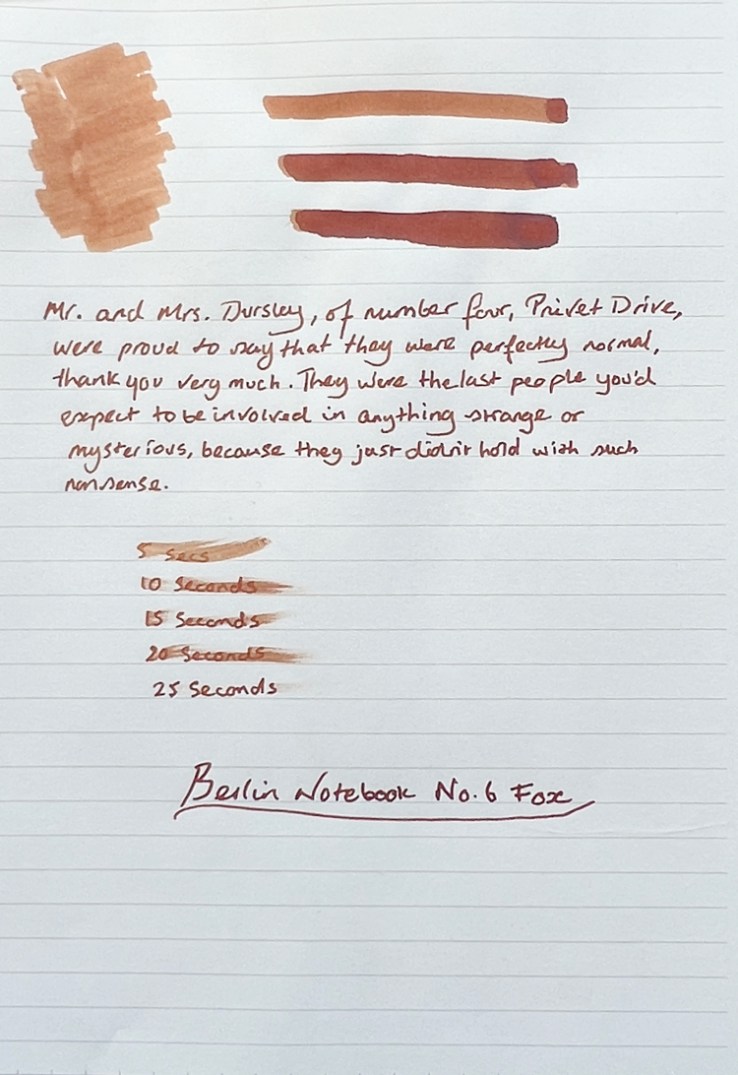 Mr. and Mrs. Dursley, of number four, Privet Drive,
were proud to say that they were perfectly normal,
thank you very much. They were the last people you'd
expect to be involved in anything strange or
mysterious, because they just didn't hold with such
nonsense.
5 Secs
10 Seconds
15 Seconds
20 Seconds
25 Seconds
Berlin Notebook No.6 Fox